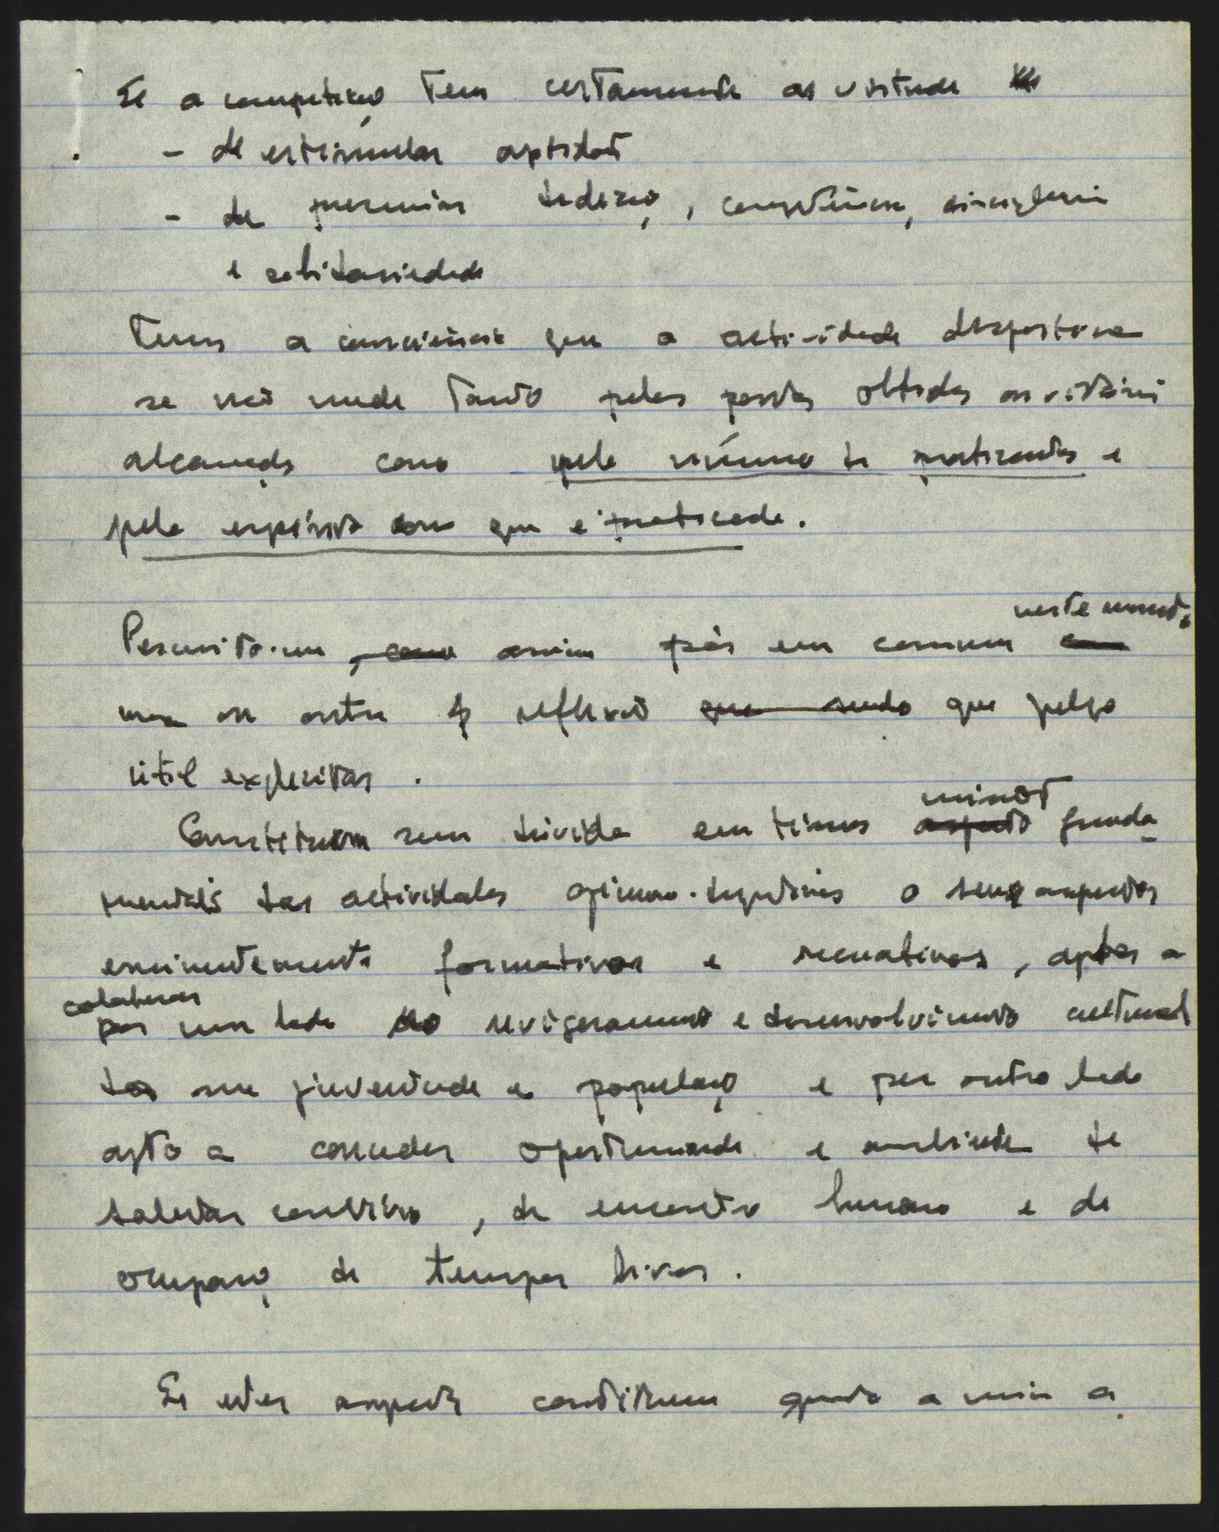 Se a competição tem certamente as virtude
- de estimular aptidões
- de premiar dedicação, competência, disciplina
e solidariedade
Temos a consciência que a actividade desportiva
se não mede tanto pelos pontos obtidos ou vitórias
alcançadas como pelo número de praticantes e
pelo espírito com que é praticada.
neste momento
Permito-me, como assim pôr em comum
uma ou outra reflexão que sendo que julgo
útil explicitar.
minôr
Constituem sem dúvida em temos aspecto funda-
mentais das actividades gimno-desportivas o seus aspectos
eminentemente formativos e recreativos, aptos a
colaborar
por um lado no revigoramento e desenvolvimento cultural
da sua juventude e população e por outro lado
apto a conceder oportunidade e ambiente de
salutar convívio, de encontro humano e de
ocupação de tempos livres.
Se estes aspectos constituem quanto a mim a